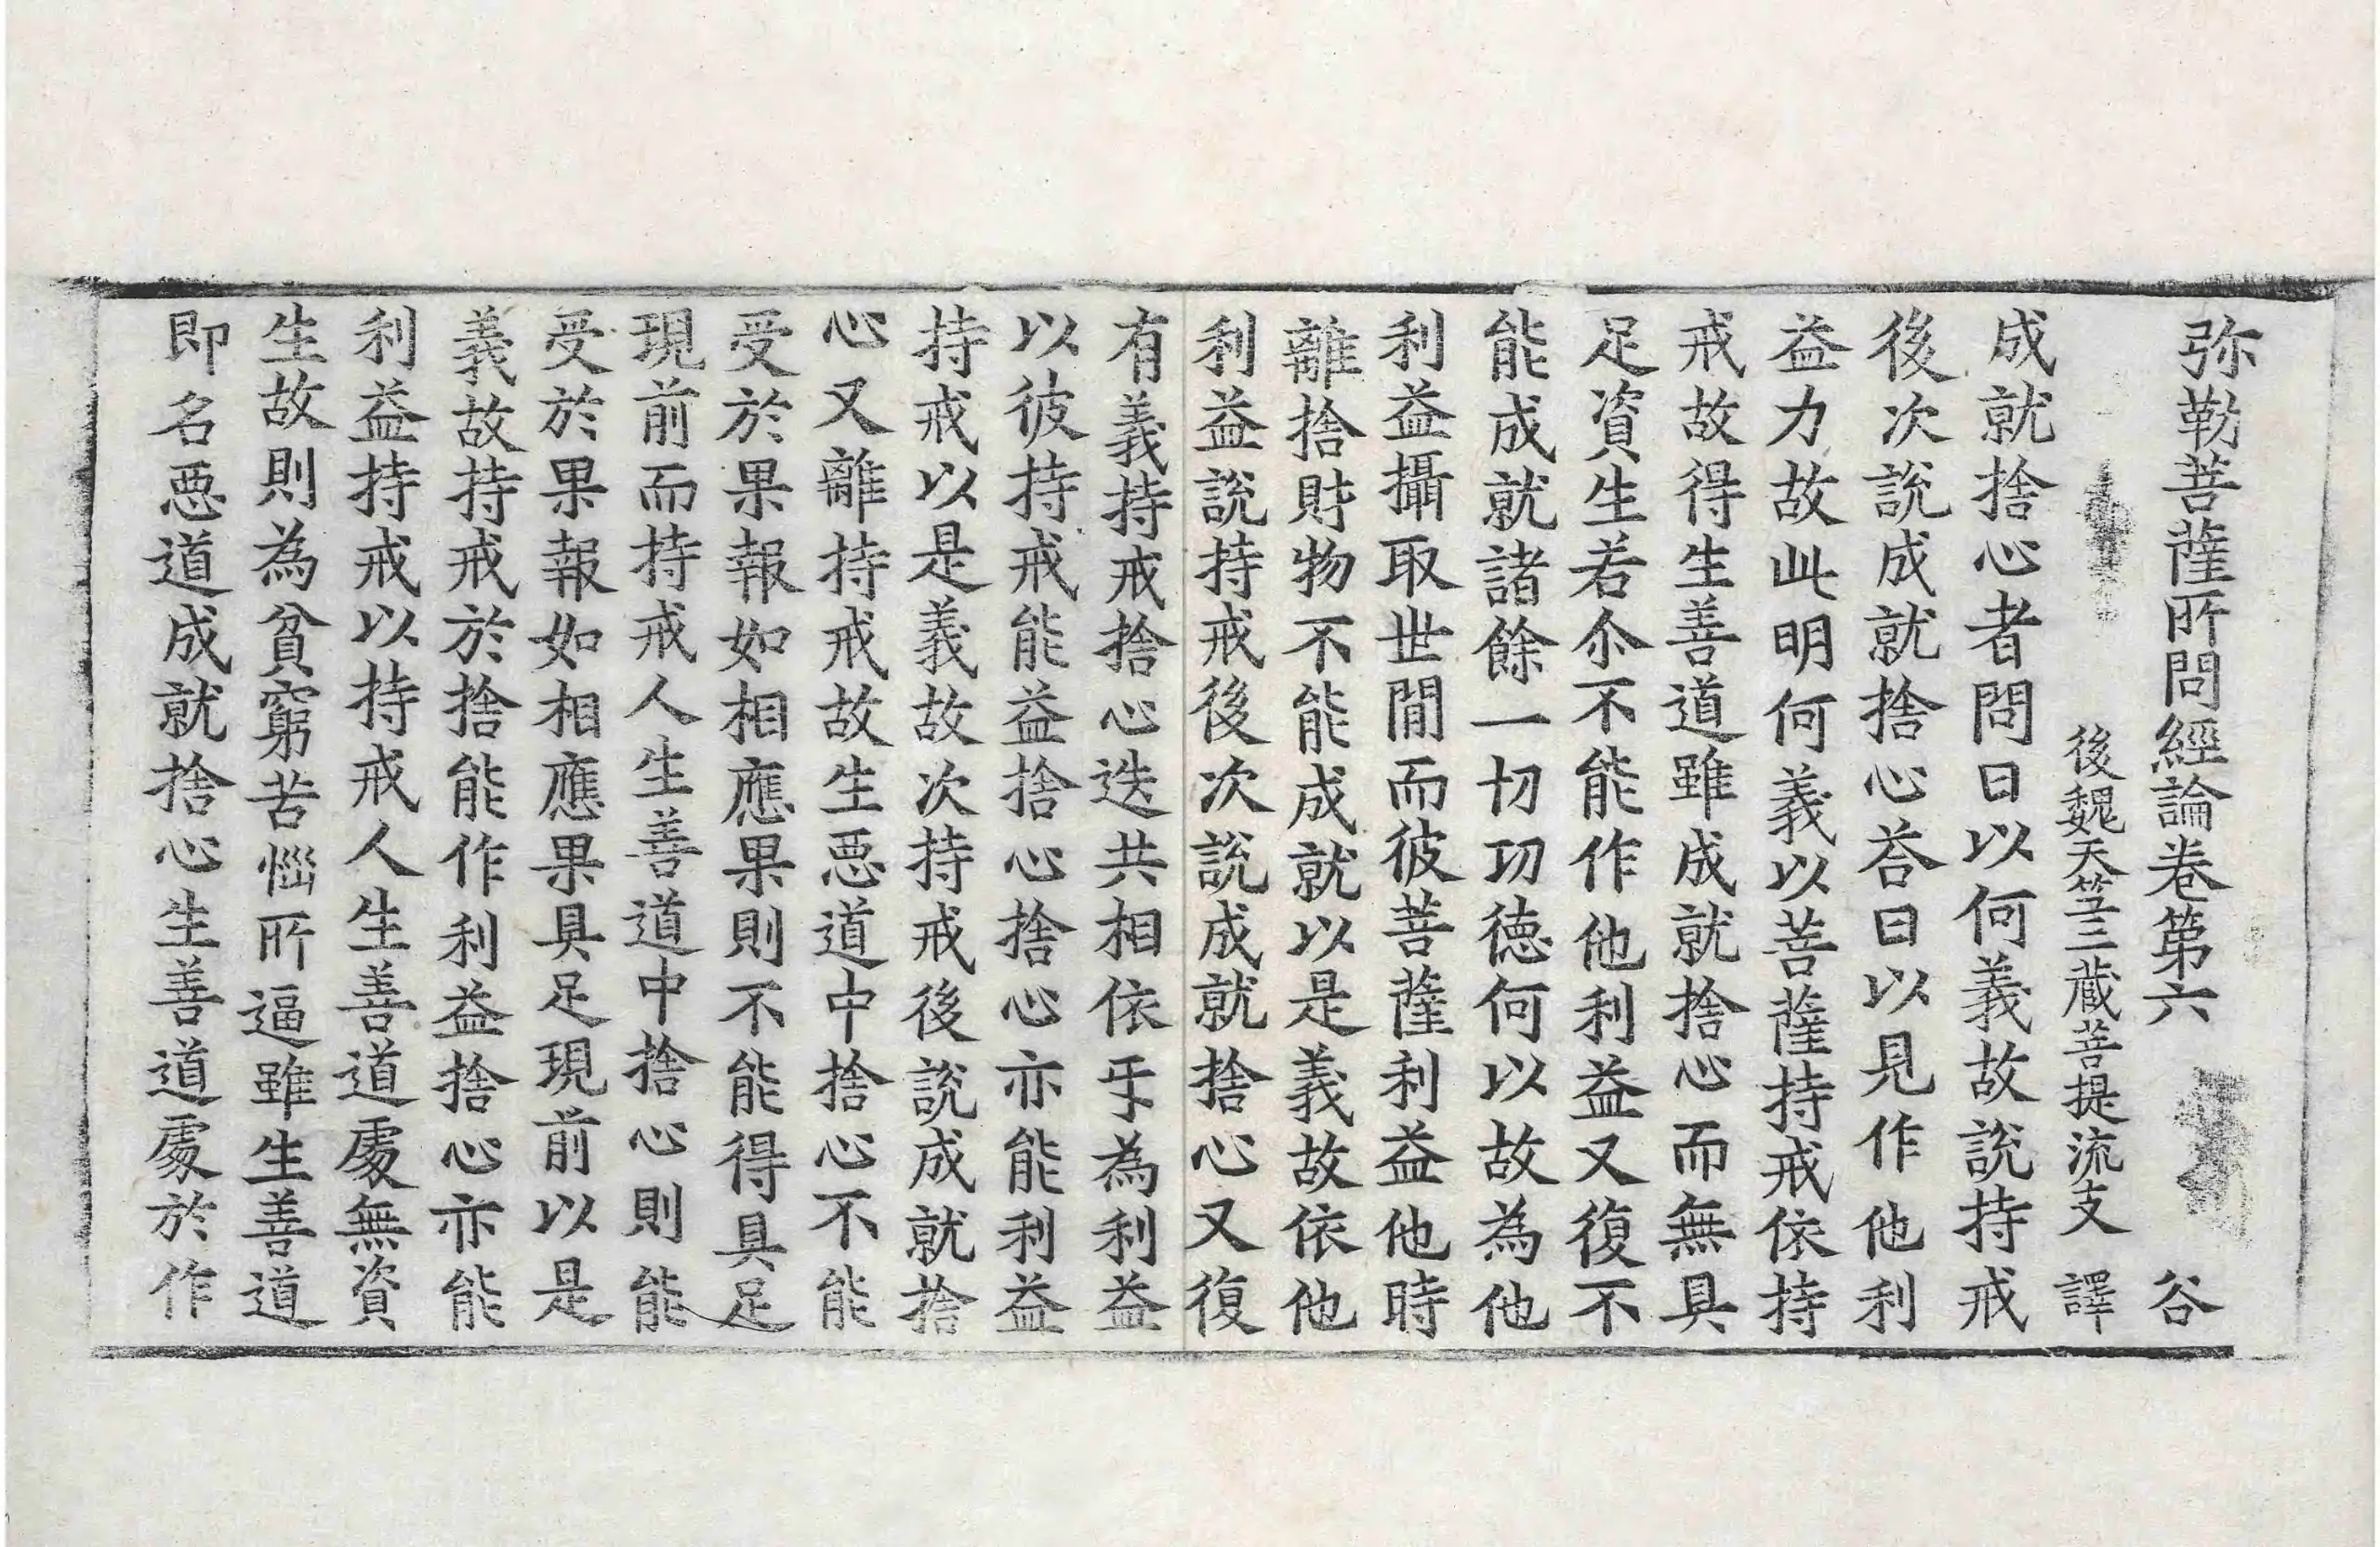 弥勒菩薩所問經論卷第六 谷
後魏天笁三藏菩提流支 譯
成就捨心者問曰以何義故說持戒
後次說成就捨心荅曰以見作他利
益力故此明何義以菩薩持戒依持
戒故得生善道雖成就捨心而無具
足資生若尒不能作他利益又復不
能成就諸餘一切功徳何以故為他
利益攝取世間而彼菩薩利益他時
離捨財物不能成就以是義故依他
利益說持戒後次說成就捨心又復
有義持戒捨心迭共相依乎為利益
以彼持戒能益捨心捨心亦能利益
持戒以是義故次持戒後說成就捨
心又離持戒故生惡道中捨心不能
受於果報如相應果則不能得具足
現前而持戒人生善道中捨心則能
受於果報如相應果具足現前以是
義故持戒於捨能作利益捨心亦能
利益持戒以持戒人生善道處無資
生故則為貧窮苦惱所逼雖生善道
即名惡道成就捨心生善道處於作